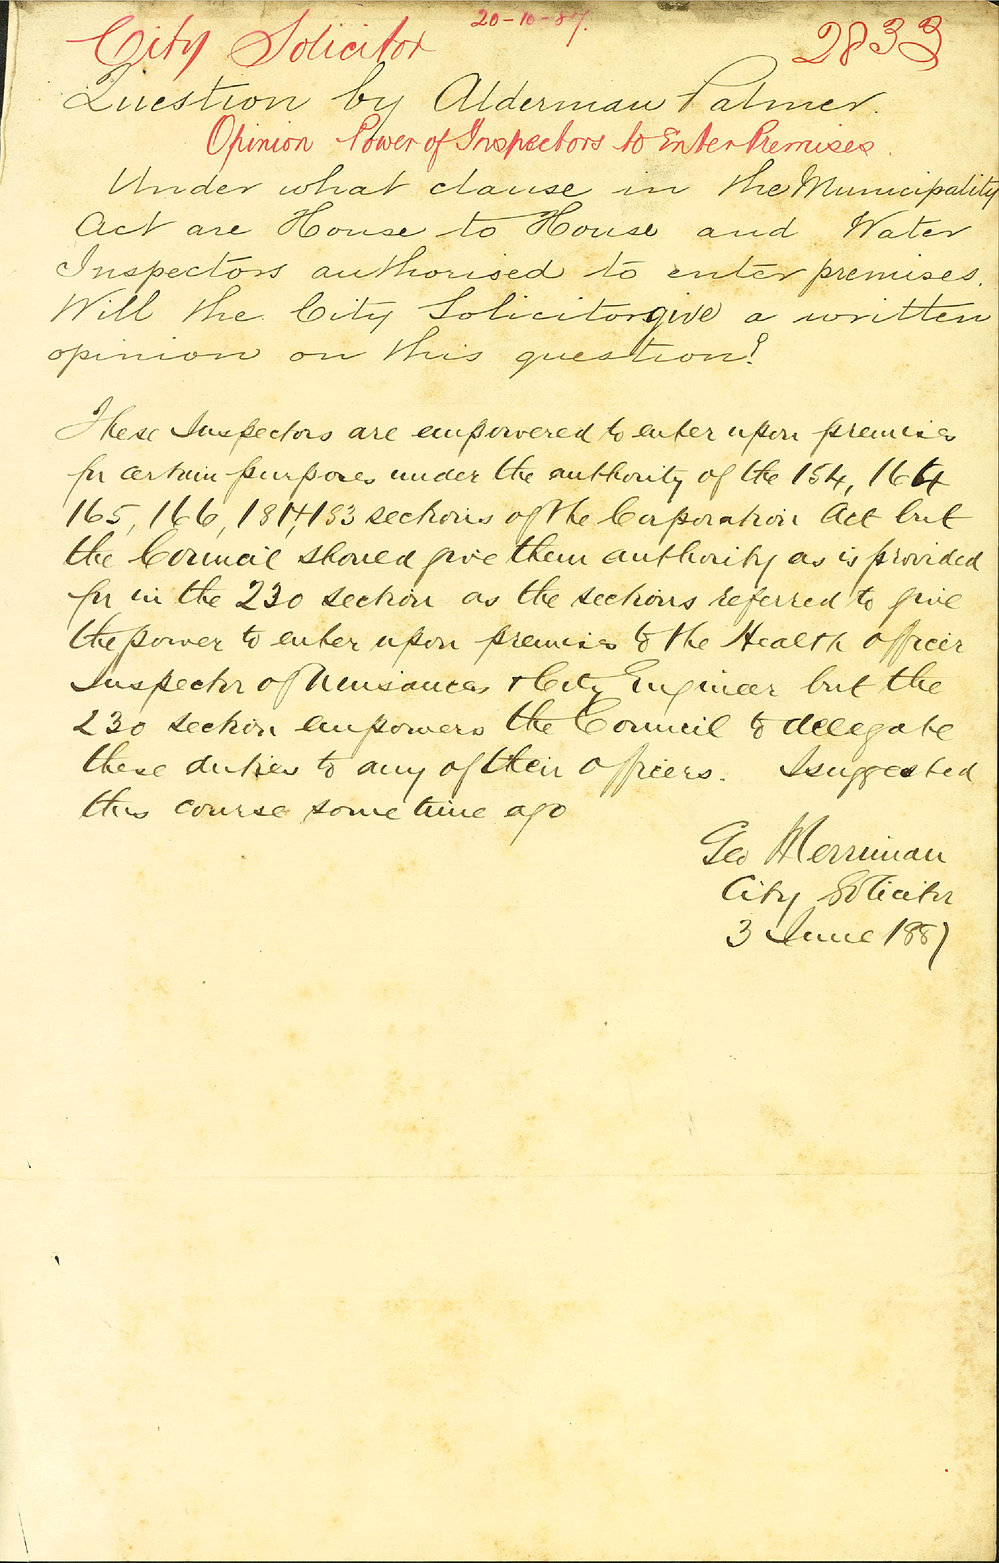 20-10-87.
City Solicitor 2833
Question by Alderman Palmer.
Opinion Power of Inspectors to Enter Premises.
Under what clause in the Municipality
Act are House to House and Water
Inspectors authorised to enter premises.
Will the City Solicitor give a written
opinion on this question?
These Inspectors are empowered to enter upon premises
for certain purposes under the authority of the 154, 164
165, 166, 181 & 183 sections of the Corporation Act but
the Council should give them authority as is provided
for in the 230 section as the sections referred to give
the power to enter upon premises to the Health Officer
Inspector of Nuisances & City Engineer but the
230 section empowers the Council to delegate
these duties to any of their officers. I suggested
this course some time ago
Geo Merriman
City Solicitor
3 June 1887